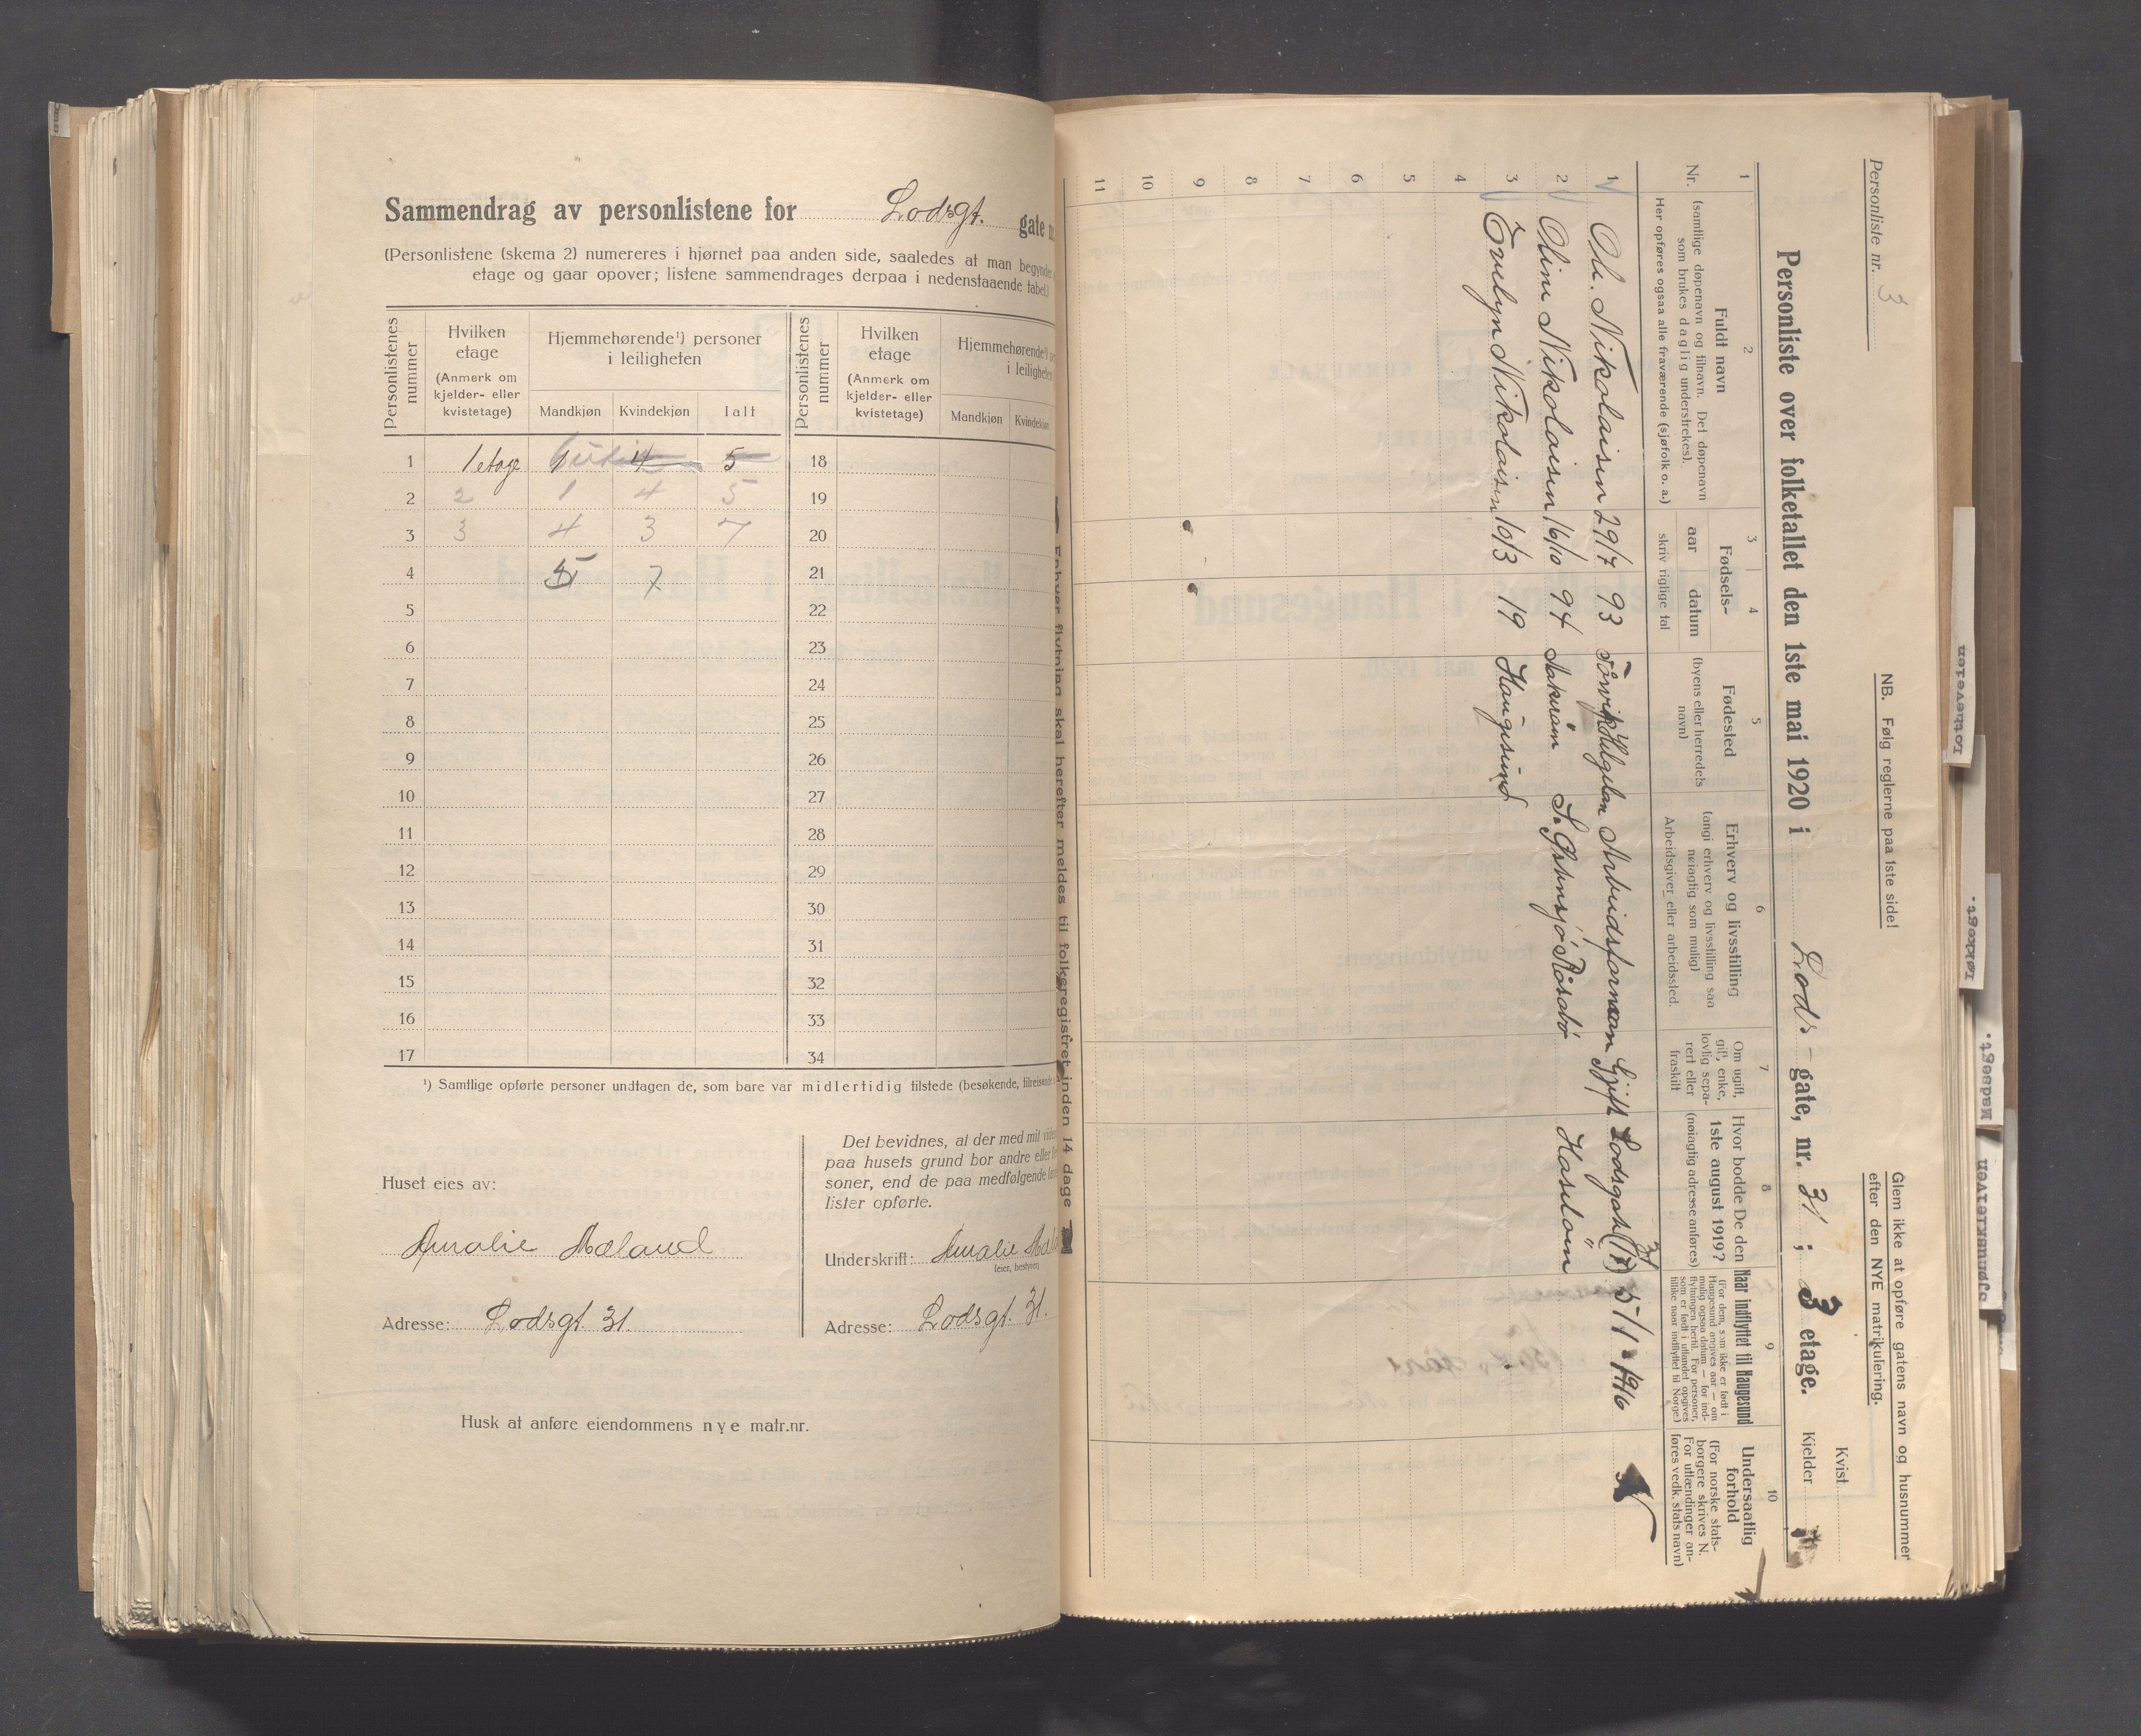 Sammendrag av personlistene for Lodsgt. gate
(Personlistene (skema 2) numereres i hjørnet paa anden side, saaledes at man begynder
etage og gaar opover; listene sammendrages derpaa i nedenstaaende tabel.)
Personlistenes nummer
Hvilken etage (Anmerk om kjelder- eller kvistetage)
Hjemmehørende¹) personer i leiligheten
Mandkjøn Kvindekjøn Ialt
Personlistenes nummer
Hvilken etage (Anmerk om kjelder- eller kvistetage)
Hjemmehørende¹)
i leiligheten
Mandkjøn Kvindekjøn
1 1 etage 1 4 5 18
2 2 1 4 5 19
3 3 4 3 7 20
4 5 7 21
5 22
6 23
7 24
8 25
9 26
10 27
11 28
12 29
13 30
14 31
15 32
16 33
17 34
¹) Samtlige opførte personer undtagen de, som bare var midlertidig tilstede (besøkende, tilreisende
Huset eies av:
Amalie Mæland
Adresse: Lodsgt. 31.
Det bevidnes, at der med mit
paa husets grund bor andre eller
soner, end de paa medfølgende
lister opførte.
Underskrift: Amalie
(eier, bestyrer)
Adresse: Lodsgt. 31.
Husk at anføre eiendommens nye matr.nr.
Enhver flytning skal herefter meldes til folkeregistret inden 14 dage
Personliste nr. 3
NB. Følg reglerne paa 1ste side!
Glem ikke at opføre gatens navn og husnummer
efter den NYE matrikulering.
Personliste over folketallet den 1ste mai 1920 i Lods- gate, nr. 31; 3 etage.
Kvist
Kjelder
1 2 3 4 5 6 7 8 9 10
Nr.
Fuldt navn
(samtlige døpenavn og tilnavn. Det døpenavn
som brukes daglig understrekes).
Her opføres ogsaa alle fraværende (sjøfolk o. a.)
Fødsels-
aar datum
skriv rigtige tal
Fødested
(byens eller herredets
navn)
Erhverv og livsstilling
(angi erhverv og livsstilling saa
nøiagtig som mulig)
Arbeidsgiver eller arbeidssted.
Om ugift,
gift, enke,
lovlig sepa-
rert eller
fraskilt
Hvor bodde De den
1ste august 1919?
(nøiagtig adresse anføres)
Naar indflyttet til Haugesund
(For dem, som ikke er født i
Haugesund angives aar — om
mulig ogsaa datum — for ind-
flytningen hertil. For personer,
som er født i utlandet opgives
tillike naar indflyttet til Norge)
Undersaatlig
forhold
(For norske stats-
borgere skrives N.
For utlændinger an-
føres vedk. stats navn)
1 Nikolaisen 29/7 93 Arbeidsforman Gift Lodsgate 31 5/1 - 1916 N
2 Oline Nikolaisen 16/10 94
3 Evelyn Nikolaisen 16/3 19 Haugesund
4
5
6
7
8
9
10
11
Totneveien
Tøkkegt.
Wadesgt.